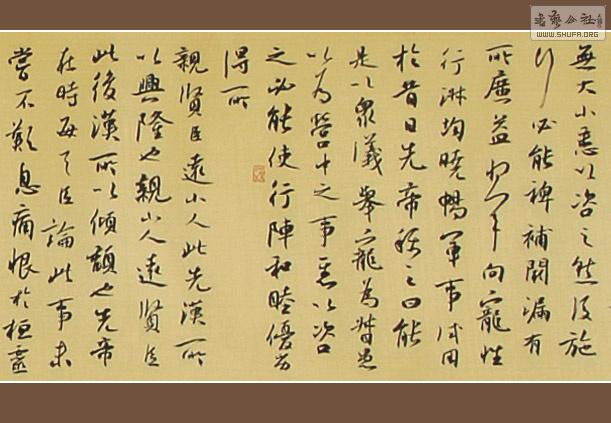 書藝公社
WWW.SHUFA.ORG
無大小悉以咨之然後施
行必能裨補闕漏有
所廣益將軍向寵性
行淑均曉暢軍事試用
於昔日先帝稱之曰能
是以眾議舉寵為督愚
以為營中之事悉以咨
之必能使行陣和睦優劣
得所
親賢臣遠小人此先漢所
以興隆也親小人遠賢臣
此後漢所以傾頹也先帝
在時每與臣論此事未
嘗不歎息痛恨於桓靈